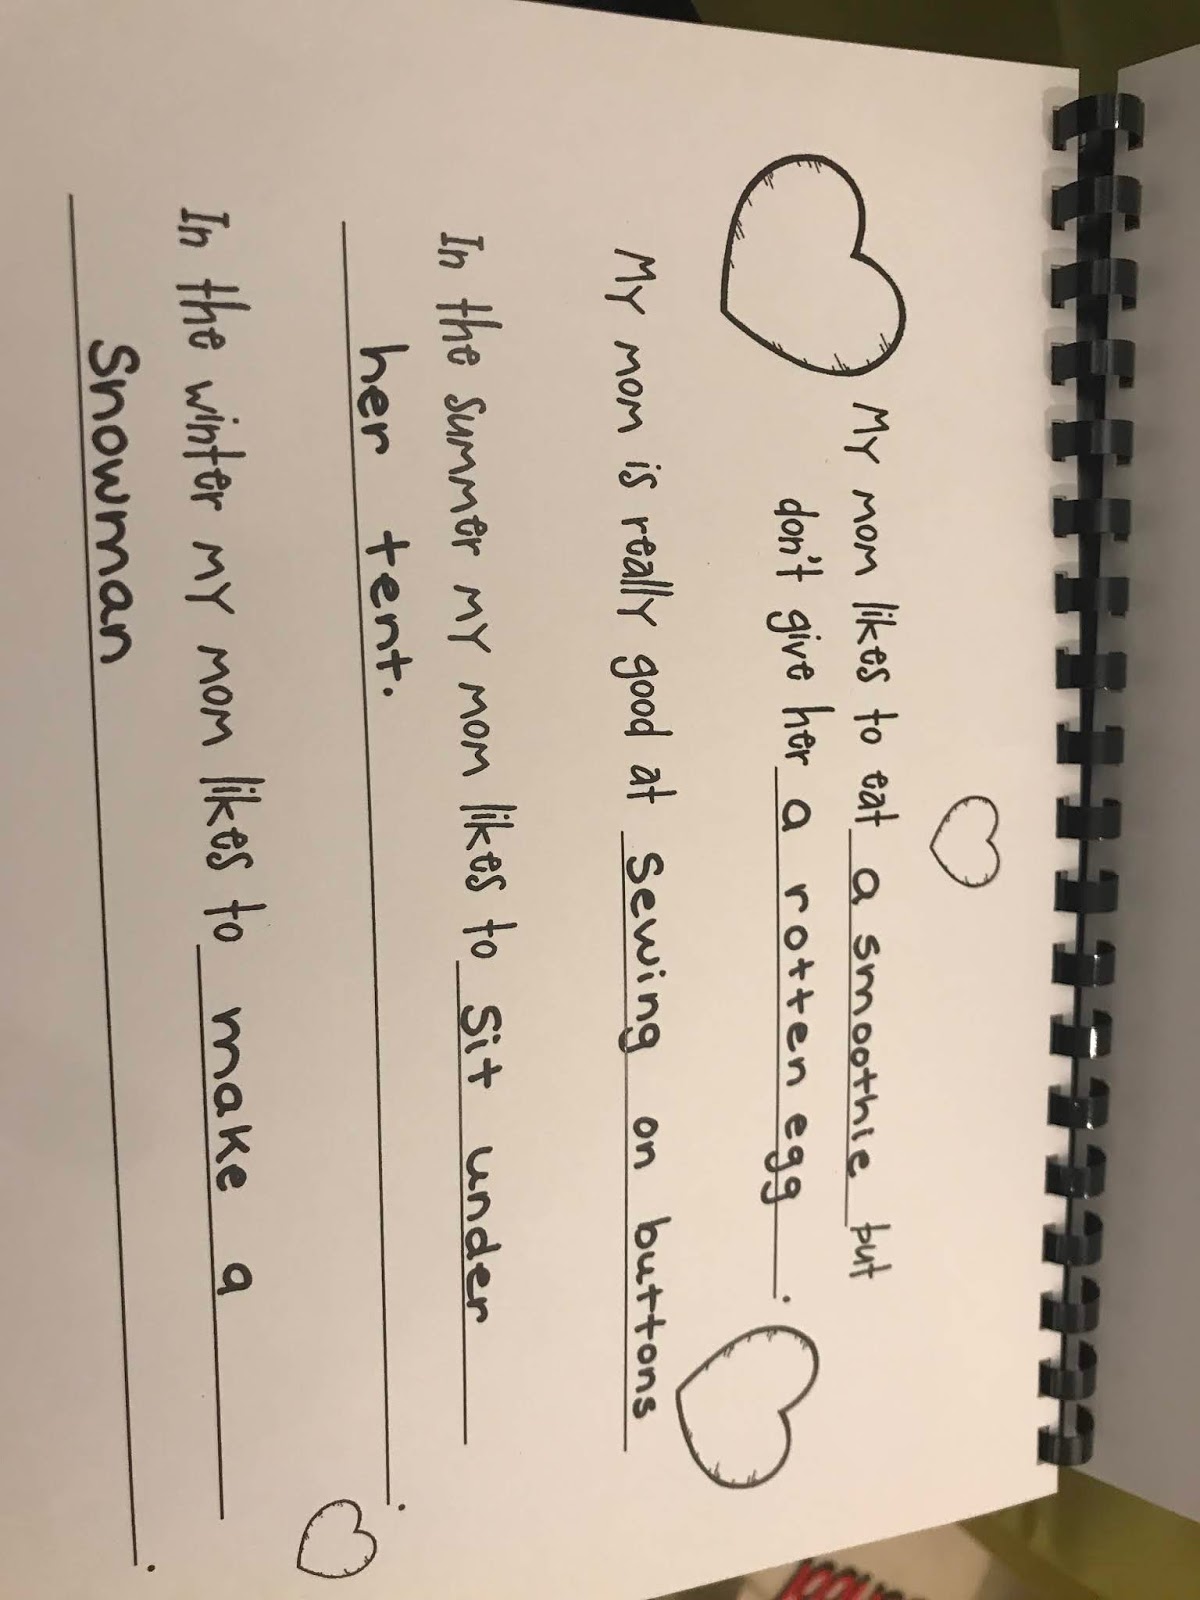 My mom likes to eat a smoothie but
don't give her a rotten egg.
My mom is really good at Sewing on buttons
In the summer my mom likes to Sit under
her tent.
In the winter my mom likes to make a
Snowman.